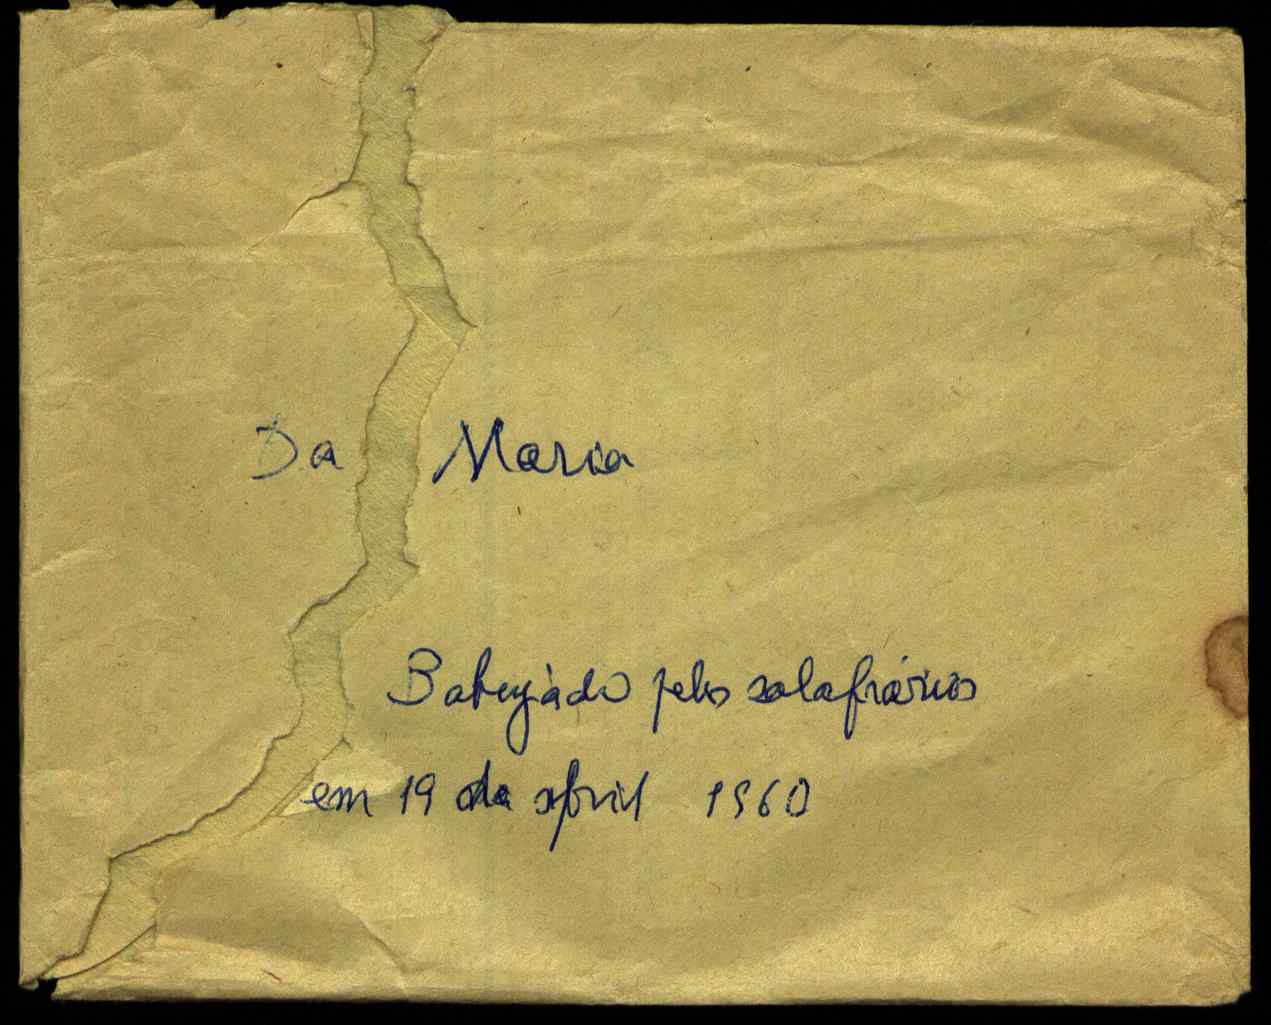 Da Maria
pelos salafrários
em 19 de abril 1960